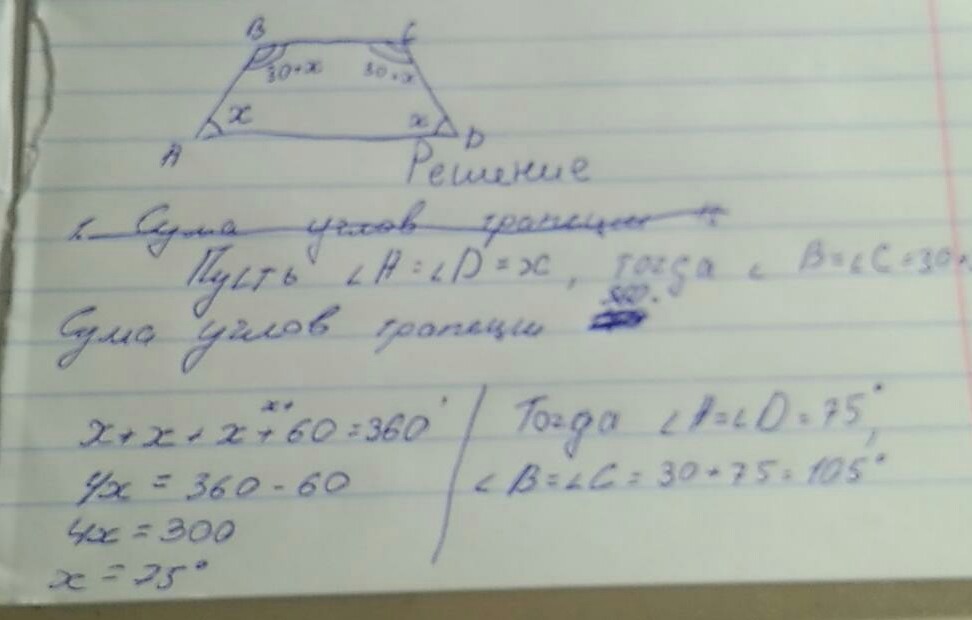 B C
30+x 30+x
x x
A D
Решение
1. Сума углов трапеции
Пусть ∠A=∠D=x, тогда ∠B=∠C=30+
Сума углов трапеции 360.
x+x+x+x+60=360°
4x = 360-60
4x = 300
x = 75°
Тогда ∠A=∠D=75°,
∠B=∠C=30+75=105°